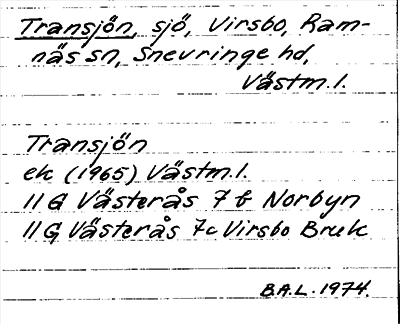 Transjön, sjö, Virsbo, Ram-
näs sn, Snevringe hd,
Västm.l.
Transjön
ek (1965) Västm.l.
11 G Västerås 7 b Norbyn
11 G Västerås 7c Virsbo Bruk
B.A.L. 1974.